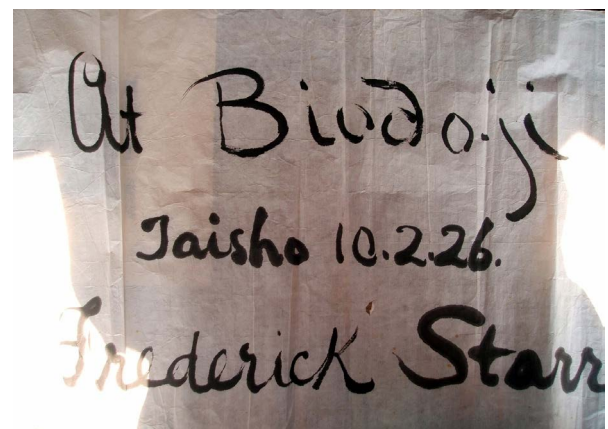 At Biodo-ji
Taisho 10.2.26.
Frederick Starr